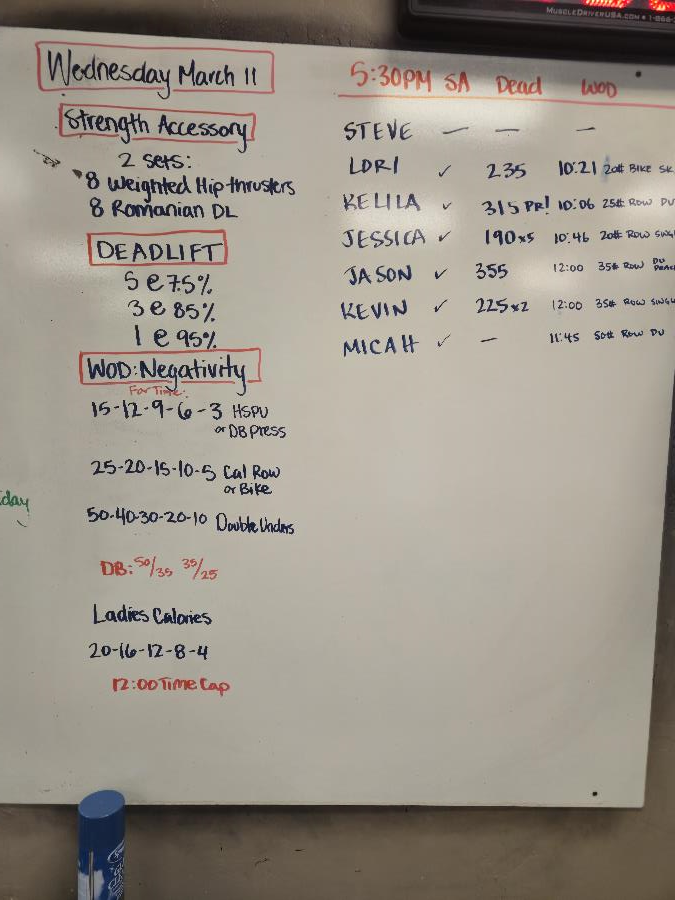 MUSCLEDRIVERUSA.COM • 1-866-
Wednesday March 11
Strength Accessory
2 sets:
8 Weighted Hip thrusters
8 Romanian DL
DEADLIFT
5 @ 75%
3 @ 85%
1 @ 95%
WOD: Negativity
For Time:
15-12-9-6-3 HSPU
or DB Press
25-20-15-10-5 Cal Row
or Bike
50-40-30-20-10 Double Unders
DB: 50/35 35/25
Ladies Calories
20-16-12-8-4
12:00 Time Cap
day
5:30PM SA Dead WOD
STEVE — — —
LORI ✓ 235 10:21 20# BIKE SK
KELILA ✓ 315 PR! 10:06 25# ROW DU
JESSICA ✓ 190x5 10:46 20# ROW SINGL
JASON ✓ 355 12:00 35# ROW DU
KEVIN ✓ 225x2 12:00 35# ROW SINGL
MICAH ✓ — 11:45 50# ROW DU